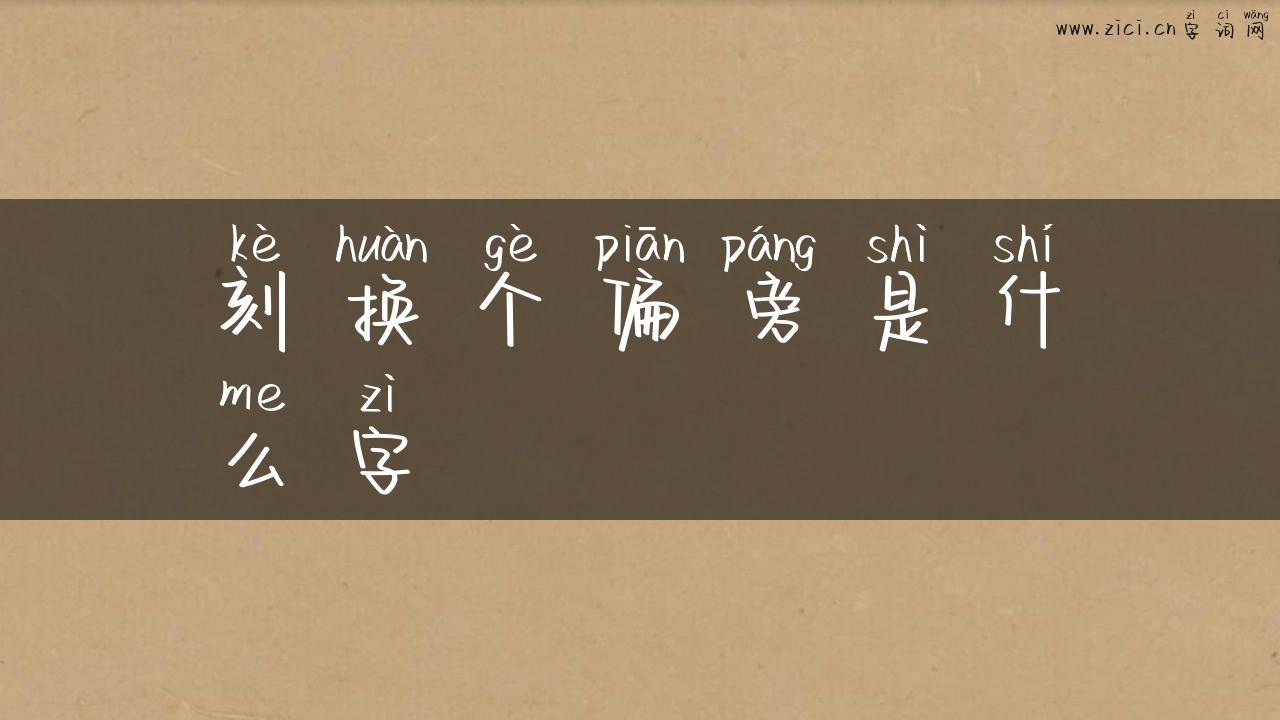 zì cí wǎng
www.zici.cn 字词网
kè huàn gè piān páng shì shí
刻换个偏旁是什
me zì
么字